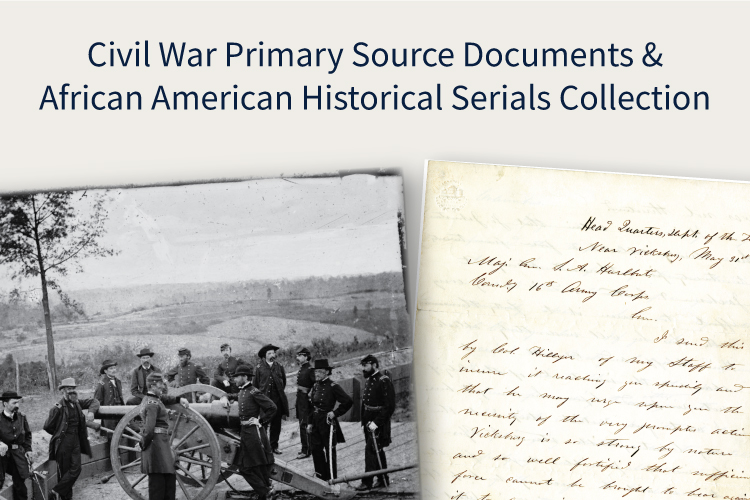 Civil War Primary Source Documents &
African American Historical Serials Collection
Head Quarters, Deph of the
Near Vicksburg, May 31st
Maj. Gen. S. A. Hurlbut
Comdg 16th Army Corps
Gen.
I send this
by Col Hillyer of my Staff to
insure it reaching you speedily and
that he may urge upon you the
necessity of the very promptes action
Vicksburg is so strong by nature
and so well fortified that sufficient
force cannot be brought to bear